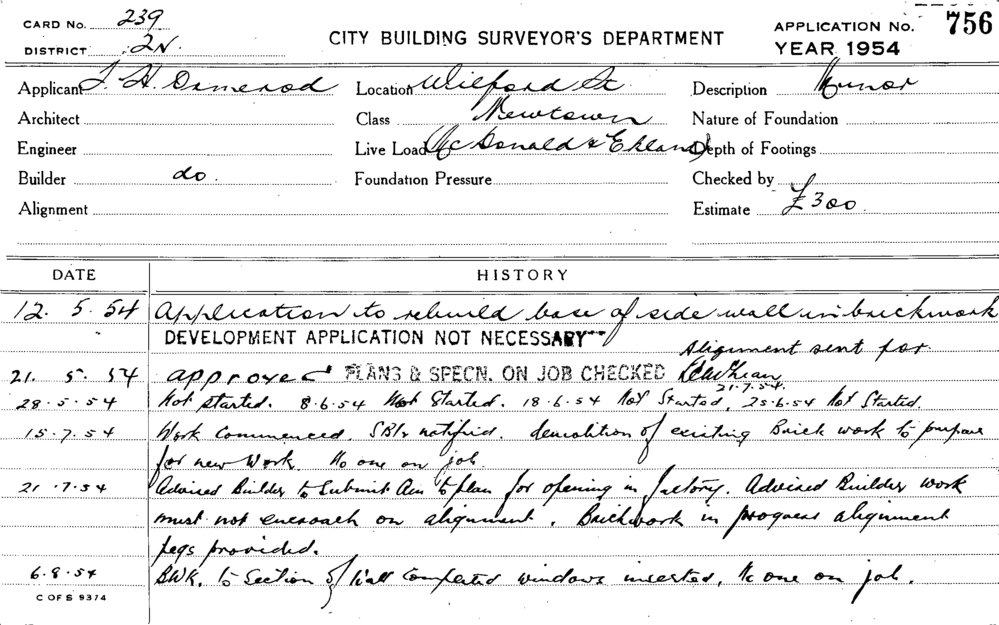 CARD No. 239
DISTRICT 2N.
CITY BUILDING SURVEYOR'S DEPARTMENT
APPLICATION No. 756
YEAR 1954
Applicant J. H. Ormerod Location Wilford St Description Minor
Architect Class Newtown Nature of Foundation
Engineer Live Load McDonald & Ekland Depth of Footings
Builder do. Foundation Pressure Checked by
Alignment Estimate £300.
DATE HISTORY
12. 5. 54 Application to rebuild base of side wall in brickwork
DEVELOPMENT APPLICATION NOT NECESSARY
Alignment sent for
21. 5. 54 approved PLANS & SPECN. ON JOB CHECKED
21.7.54.
28.5.54 Not started. 8.6.54 Not Started. 18.6.54 Not Started, 25.6.54 Not Started.
15.7.54 Work Commenced. SBI's notified. demolition of existing Brick work to prepare
for new Work. No one on job.
21.7.54 Advised Builder to Submit Am to plan for opening in factory. Advised Builder work
must not encroach on alignment. Brickwork in progress alignment
pegs provided.
6.8.54 BWK. to Section of Wall Completed windows inserted, No one on job.
C OF S 9374